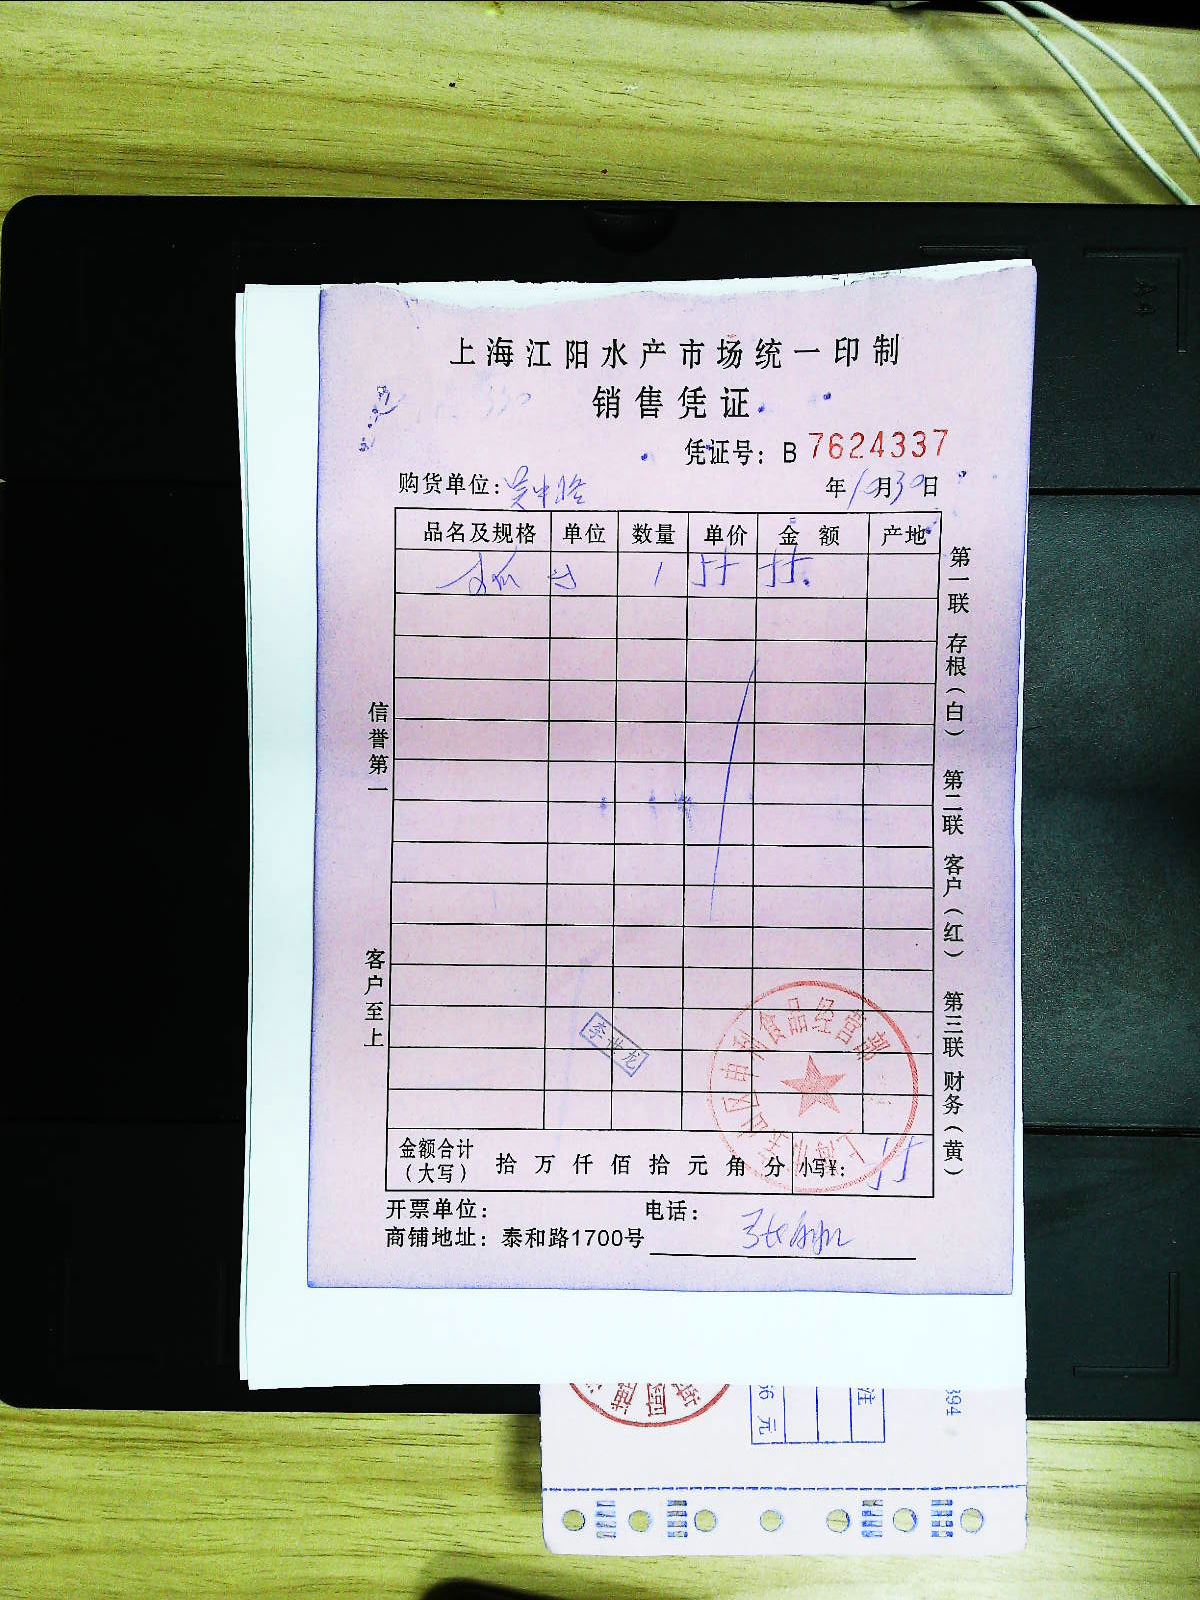 上海江阳水产市场统一印制
销售凭证
凭证号：B 7624337
购货单位： 年10月30日
品名及规格 单位 数量 单价 金额 产地
1
信誉第一
客户至上
第一联 存根（白） 第二联 客户（红） 第三联 财务（黄）
李世龙
申利食品经营部
金额合计（大写） 拾 万 仟 佰 拾 元 角 分 小写¥：
开票单位： 电话：
商铺地址：泰和路1700号
注
元
394
A4